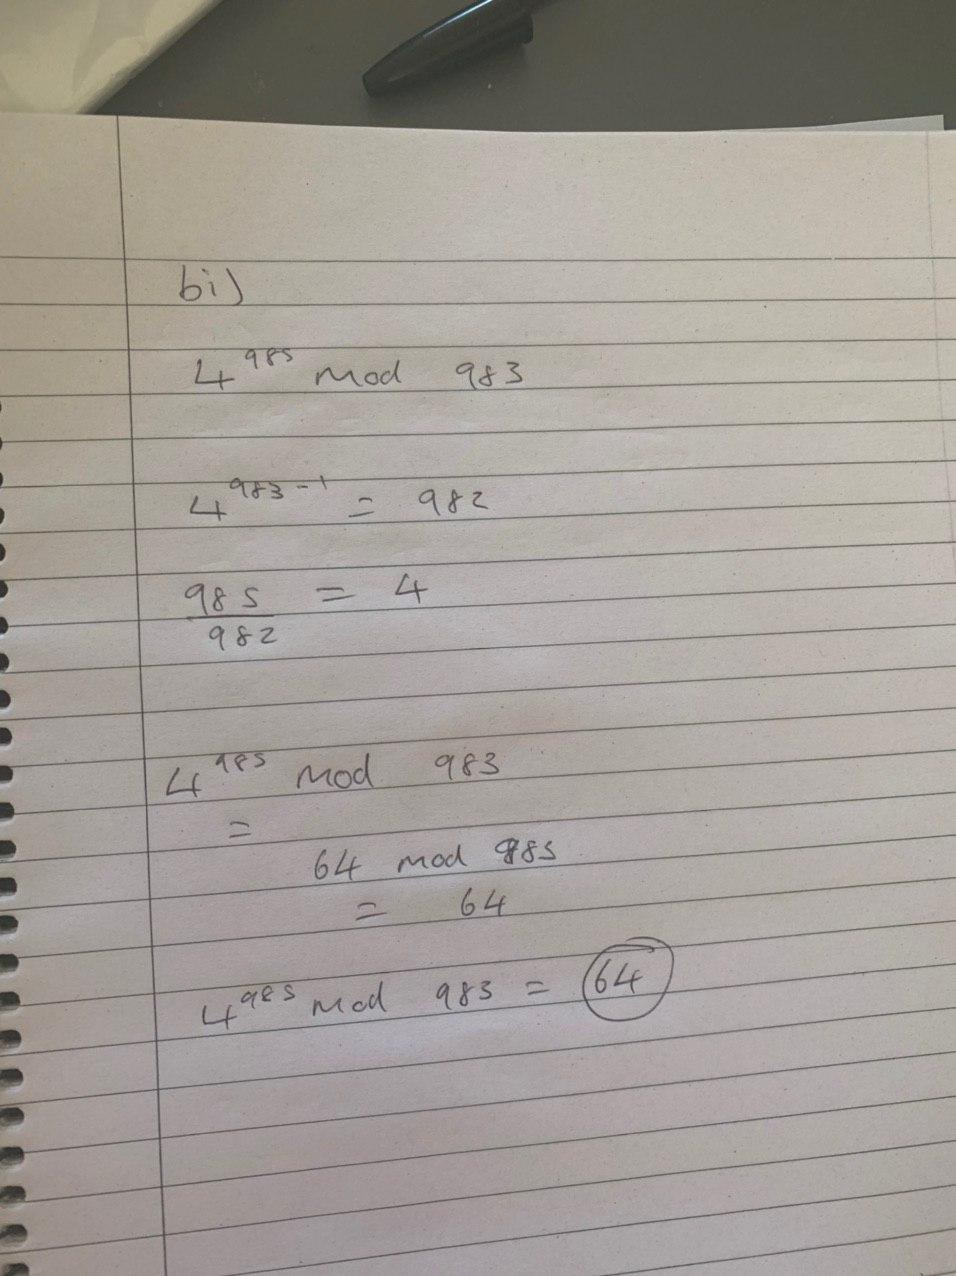 bi)
4^985 mod 983
4^983-1 = 982
985 = 4
982
4^985 mod 983
=
64 mod 985
= 64
4^985 mod 983 = 64